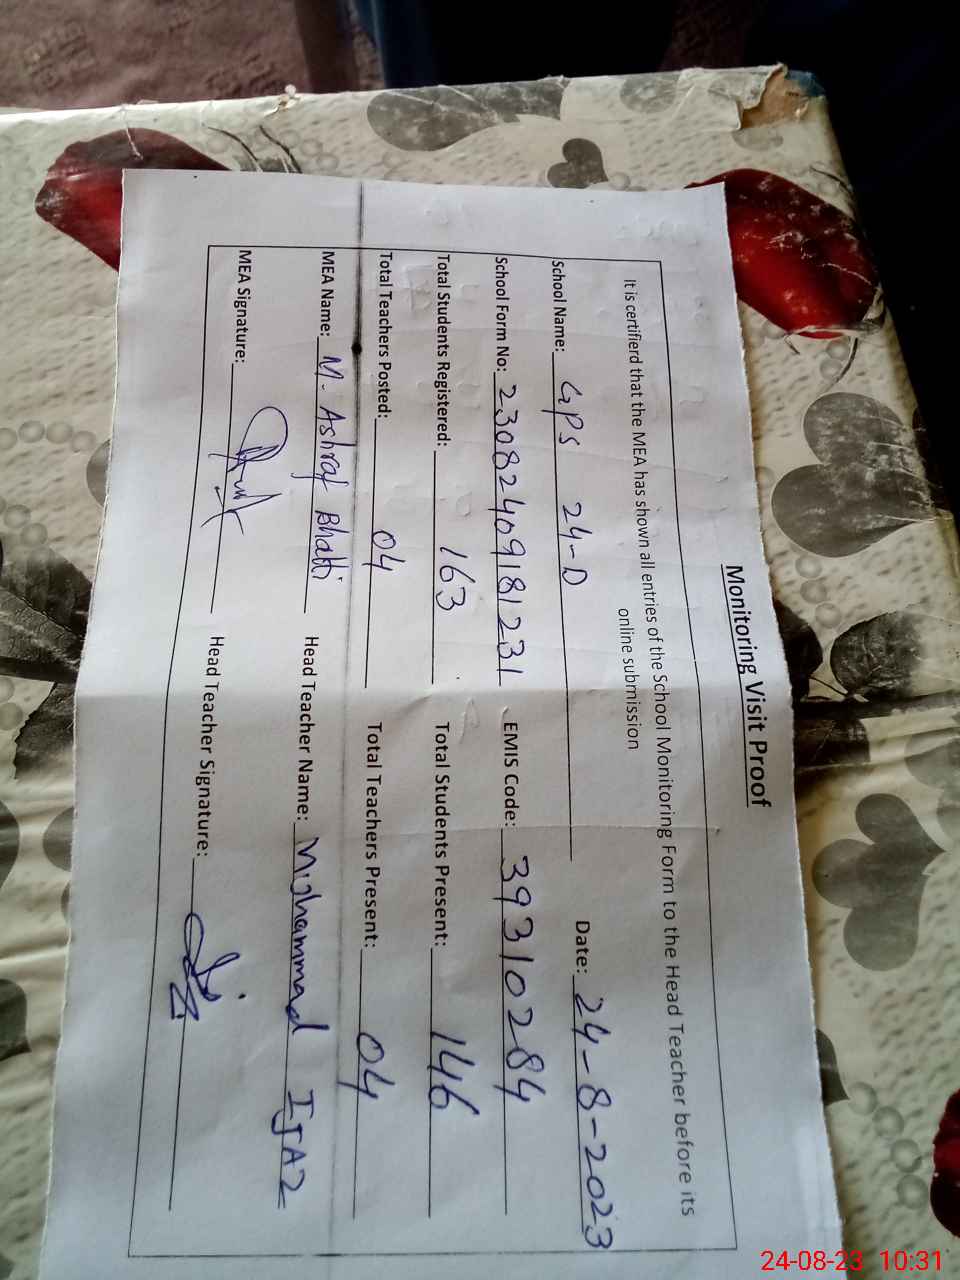 Monitoring Visit Proof
It is certifierd that the MEA has shown all entries of the School Monitoring Form to the Head Teacher before its
online submission
School Name: GPS 24-D Date: 24-8-2023
School Form No: 23082409181231 EMIS Code: 39310284
Total Students Registered: 163 Total Students Present: 146
Total Teachers Posted: 04 Total Teachers Present: 04
MEA Name: M. Ashraf Bhatti Head Teacher Name: Muhammad IJAZ
MEA Signature: Head Teacher Signature:
24-08-23 10:31